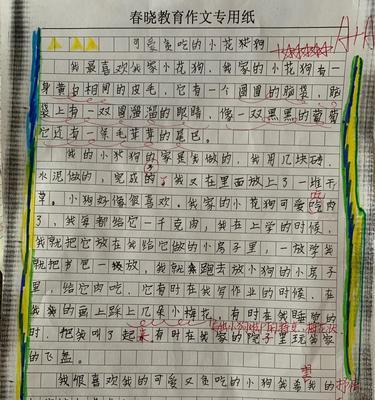 春晓教育作文专用纸
可爱贪吃的小花狗 A+A
我最喜欢我家小花狗。我家的小花狗有一
身黄白相间的皮毛，它有一个圆圆的脑袋，脑
袋上有一双圆溜溜的眼睛，像一双黑黑的葡萄
它还有一条毛茸茸的尾巴。
我的小花狗的家是我做的，我用几块砖，
水泥做的，完成的了我又在里面放上了一堆干
草。小狗好像很喜欢。我家的小花狗可爱吃肉
了，我每都给它一千克肉，我在上学的时候，
我就把它放在我给它做的小房子里，一放学我
就把书包一放，我就跑去放小狗的小房子
里，给它肉吃，它有时在我写作业的时候，在
我的画上踩上几朵小梅花，有时在我睡觉的
时，把我叫了起来有时在我家的院子里玩我家
的飞盘。
我很喜欢我的可爱又贪吃的小狗我